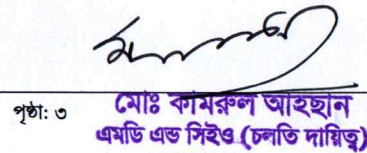 পৃষ্ঠা: ৩
মোঃ কামরুল আহছান
এমডি এন্ড সিইও (চলতি দায়িত্ব)